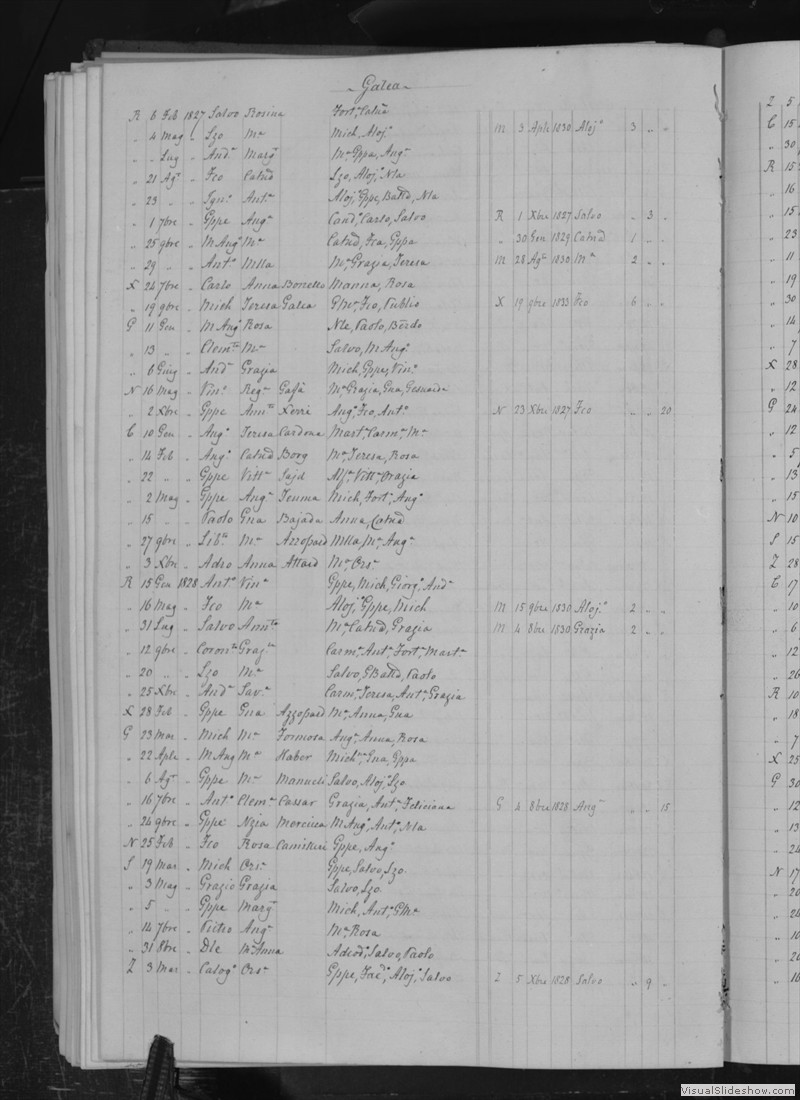 Galea
R 6 Feb 1827 Salvo Rosina Fort, Catna
„ 4 Mag „ Szo Ma Mich, Aloja M 3 Aple 1830 Aloja 3 „ „
„ „ Lug „ Anda Marga Ma Gppa, Anga
„ 21 Aga „ Fco Catnd Szo, Aloja Nta
„ 23 „ „ Igno Anta Aloj, Gppe, Battd, Nta
„ 1 7bre „ Gppe Anga Cand, Carlo, Salvo R 1 Xbre 1827 Salvo „ 3 „
„ 25 9bre „ M Ango Ma Catnd, Fca, Gppa „ 30 Gen 1829 Catnd 1 „ „
„ 29 „ „ Anto Mlla Ma Grazia, Teresa M 28 Ago 1830 Ma 2 „ „
X 24 7bre „ Carlo Anna Bonello Marina, Rosa
„ 19 9bre „ Mich Teresa Galea GMa, Fco, Publio X 19 9bre 1833 Fco 6 „ „
G 11 Gen „ M Ango Rosa Nta, Paolo, Berdo
„ 13 „ „ Clemte Ma Salvo, M Ango
„ 6 Giug „ Anda Grazia Mich, Gppe, Vino
N 16 Mag „ Vino Rega Gafà Ma Grazia, Gna,
„ 2 Xbre „ Gppe Annta Xerri Ango Fco, Anto N 23 Xbre 1827 Fco „ „ 20
C 10 Gen „ Ango Teresa Cardona Marta, Carma, Ma
„ 14 Feb „ Ango Catnd Borg Ma, Teresa, Rosa
„ 22 „ „ Gppe Vitta Sajd Alfo, Vitta, Orazia
„ 2 Mag „ Gppe Anga Teuma Mich, Forto, Ango
„ 15 „ „ Paolo Gna Bajada Anna, Catnd
„ 27 9bre „ Liba Ma Azzopard Mlla, Ma, Anga
„ 3 Xbre „ Adeo Anna Attard Ma, Orsa
R 15 Gen 1828 Anto Vina Gppe, Mich, Giorgo, Anda
„ 16 Mag „ Fco Ma Aloja, Gppe, Mich M 15 9bre 1830 Aloja 2 „ „
„ 31 Lug „ Salvo Annta Ma, Catnd, Grazia M 4 8bre 1830 Grazia 2 „ „
„ 12 9bre „ Corono Graza Carma, Anta, Forta, Marta
„ 20 „ „ Szo Ma Salvo, GBattd, Paolo
„ 25 Xbre „ Anda Sava Carma, Teresa, Anta, Grazia
X 28 Feb „ Gppe Gna Azzopard Ma, Anna, Gna
G 23 Mar „ Mich Ma Formosa Anga, Anna, Rosa
„ 22 Aple „ M Ang Ma Habor Micha, Gna, Gppa
„ 6 Aga „ Gppe Ma Manueli Salvo, Aloja, Szo
„ 16 7bre „ Anto Clema Cassar Grazia, Anta, Feliciana G 4 8bre 1828 Anga „ „ 15
„ 24 9bre „ Gppe Nzia Morcieca M Ango, Anto, Nta
N 25 Feb „ Fco Rosa Camilleri Gppe, Anga
S 19 Mar „ Mich Orsa Gppe, Salvo, Szo
„ 3 Mag „ Grazio Grazia Salvo, Szo
„ 5 „ „ Gppe Marga Mich, Anto, GMa
„ 14 7bre „ Pietro Anga Ma, Rosa
„ 31 8bre „ Dle Ma Anna Adeod, Salvo, Paolo
Z 3 Mar „ Calogo Orsa Gppe, Aloja, Salvo Z 5 Xbre 1828 Salvo „ 9 „
Z 5
C 15
„ 30
R 15
„ 16
„ 15
„ 23
„ 11
„ 19
„ 30
„ 14
„ 7
X 28
„ 12
G 24
„ 12
„ 5
„ 13
„ 15
N 10
S 15
Z 28
C 17
„ 10
„ 6
„ 12
„ 26
R 10
„ 18
„ 7
X 25
G 30
„ 12
„ 13
„ 24
N 17
„ 20
„ 24
„ 10
„ 20
„ 16
VisualSlideshow.com